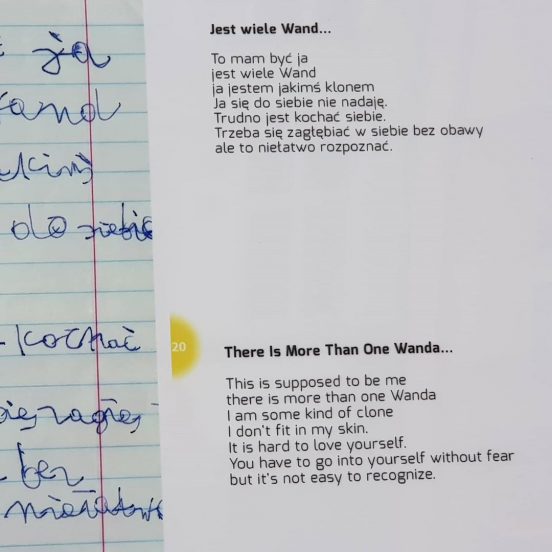 ja
do siebie
kochać
bez
Jest wiele Wand...
To mam być ja
jest wiele Wand
ja jestem jakimś klonem
Ja się do siebie nie nadaję.
Trudno jest kochać siebie.
Trzeba się zagłębiać w siebie bez obawy
ale to niełatwo rozpoznać.
20
There Is More Than One Wanda...
This is supposed to be me
there is more than one Wanda
I am some kind of clone
I don't fit in my skin.
It is hard to love yourself.
You have to go into yourself without fear
but it's not easy to recognize.